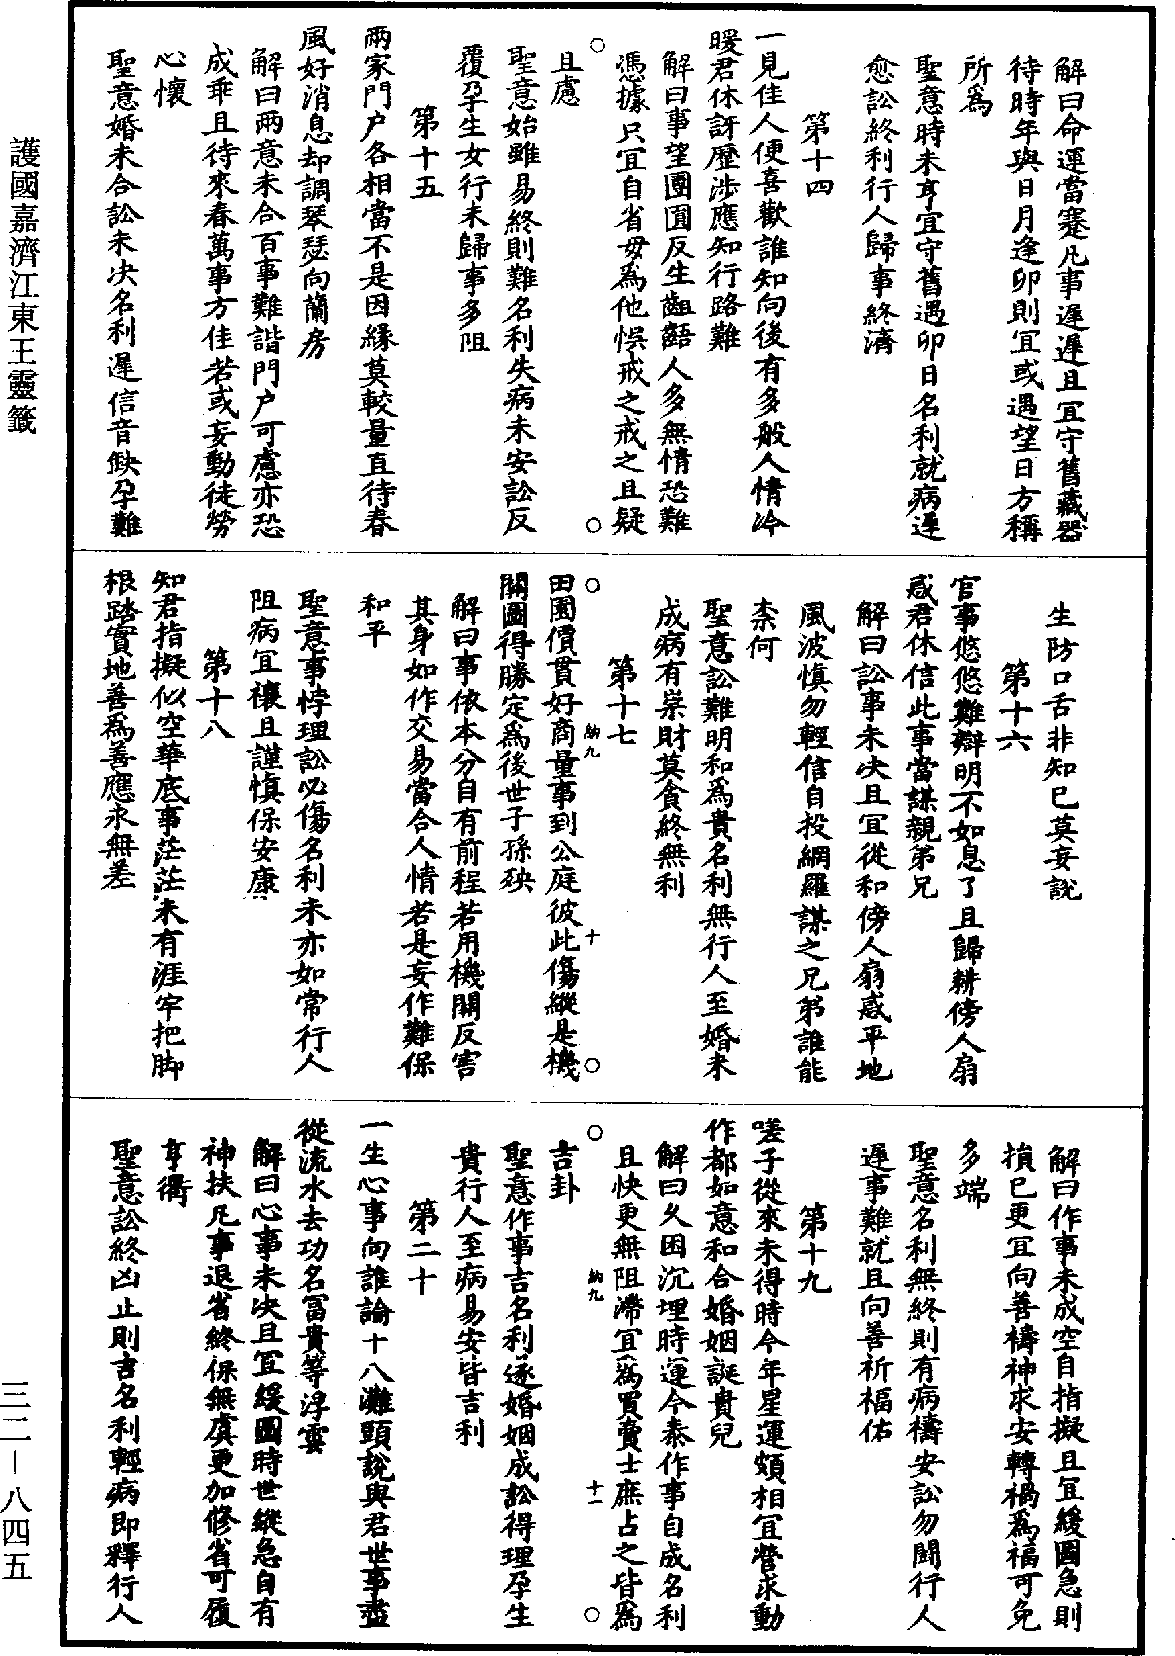 解曰命運當蹇凡事遲遲且宜守舊藏器
待時年與日月逢卯則宜或遇望日方稱
所為
聖意時未亨宜守舊遇卯日名利就病遲
愈訟終利行人歸事終濟
第十四
一見佳人便喜歡誰知向後有多般人情冷
暖君休訝歷涉應知行路難
解曰事望團圓反生齟齬人多無情恐難
憑據只宜自省毋為他悞戒之戒之且疑
且慮
聖意始雖易終則難名利失病未安訟反
覆孕生女行未歸事多阻
第十五
兩家門户各相當不是因緣莫較量直待春
風好消息却調琴瑟向蘭房
解曰兩意未合百事難諧門户可慮亦恐
成乖且待來春萬事方佳若或妄動徒勞
心懷
聖意婚未合訟未决名利遲信音缺孕難
生防口舌非知已莫妄說
第十六
官事悠悠難辯明不如息了且歸耕傍人扇
惑君休信此事當謀親弟兄
解曰訟事未决且宜從和傍人扇惑平地
風波慎勿輕信自投網羅謀之兄弟誰能
柰何
聖意訟難明和為貴名利無行人至婚未
成病有祟財莫貪終無利
第十七
納九
十
田園價貫好商量事到公庭彼此傷縱是機
關圖得勝定為後世子孫殃
解曰事依本分自有前程若用機關反害
其身如作交易當合人情若是妄作難保
和平
聖意事悖理訟必傷名利未亦如常行人
阻病宜禳且謹慎保安康
第十八
知君指擬似空華底事茫茫未有涯牢把脚
根踏實地善為善應永無差
解曰作事未成空自指擬且宜緩圖急則
損已更宜向善禱神求安轉禍為福可免
多端
聖意名利無終則有病禱安訟勿鬪行人
遲事難就且向善祈福佑
第十九
嗟子從來未得時今年星運頗相宜營求動
作都如意和合婚姻誕貴兒
解曰久困沉埋時運今泰作事自成名利
且快更無阻滯宜為買賣士庶占之皆為
納九
十一
吉卦
聖意作事吉名利遂婚姻成訟得理孕生
貴行人至病易安皆吉利
第二十
一生心事向誰論十八灘頭說與君世事盡
從流水去功名富貴等浮雲
解曰心事未决且宜緩圖時世縱急自有
神扶凡事退省終保無虞更加修省可履
亨衢
聖意訟終凶止則吉名利輕病即釋行人
護國嘉濟江東王靈籤
三二－八四五